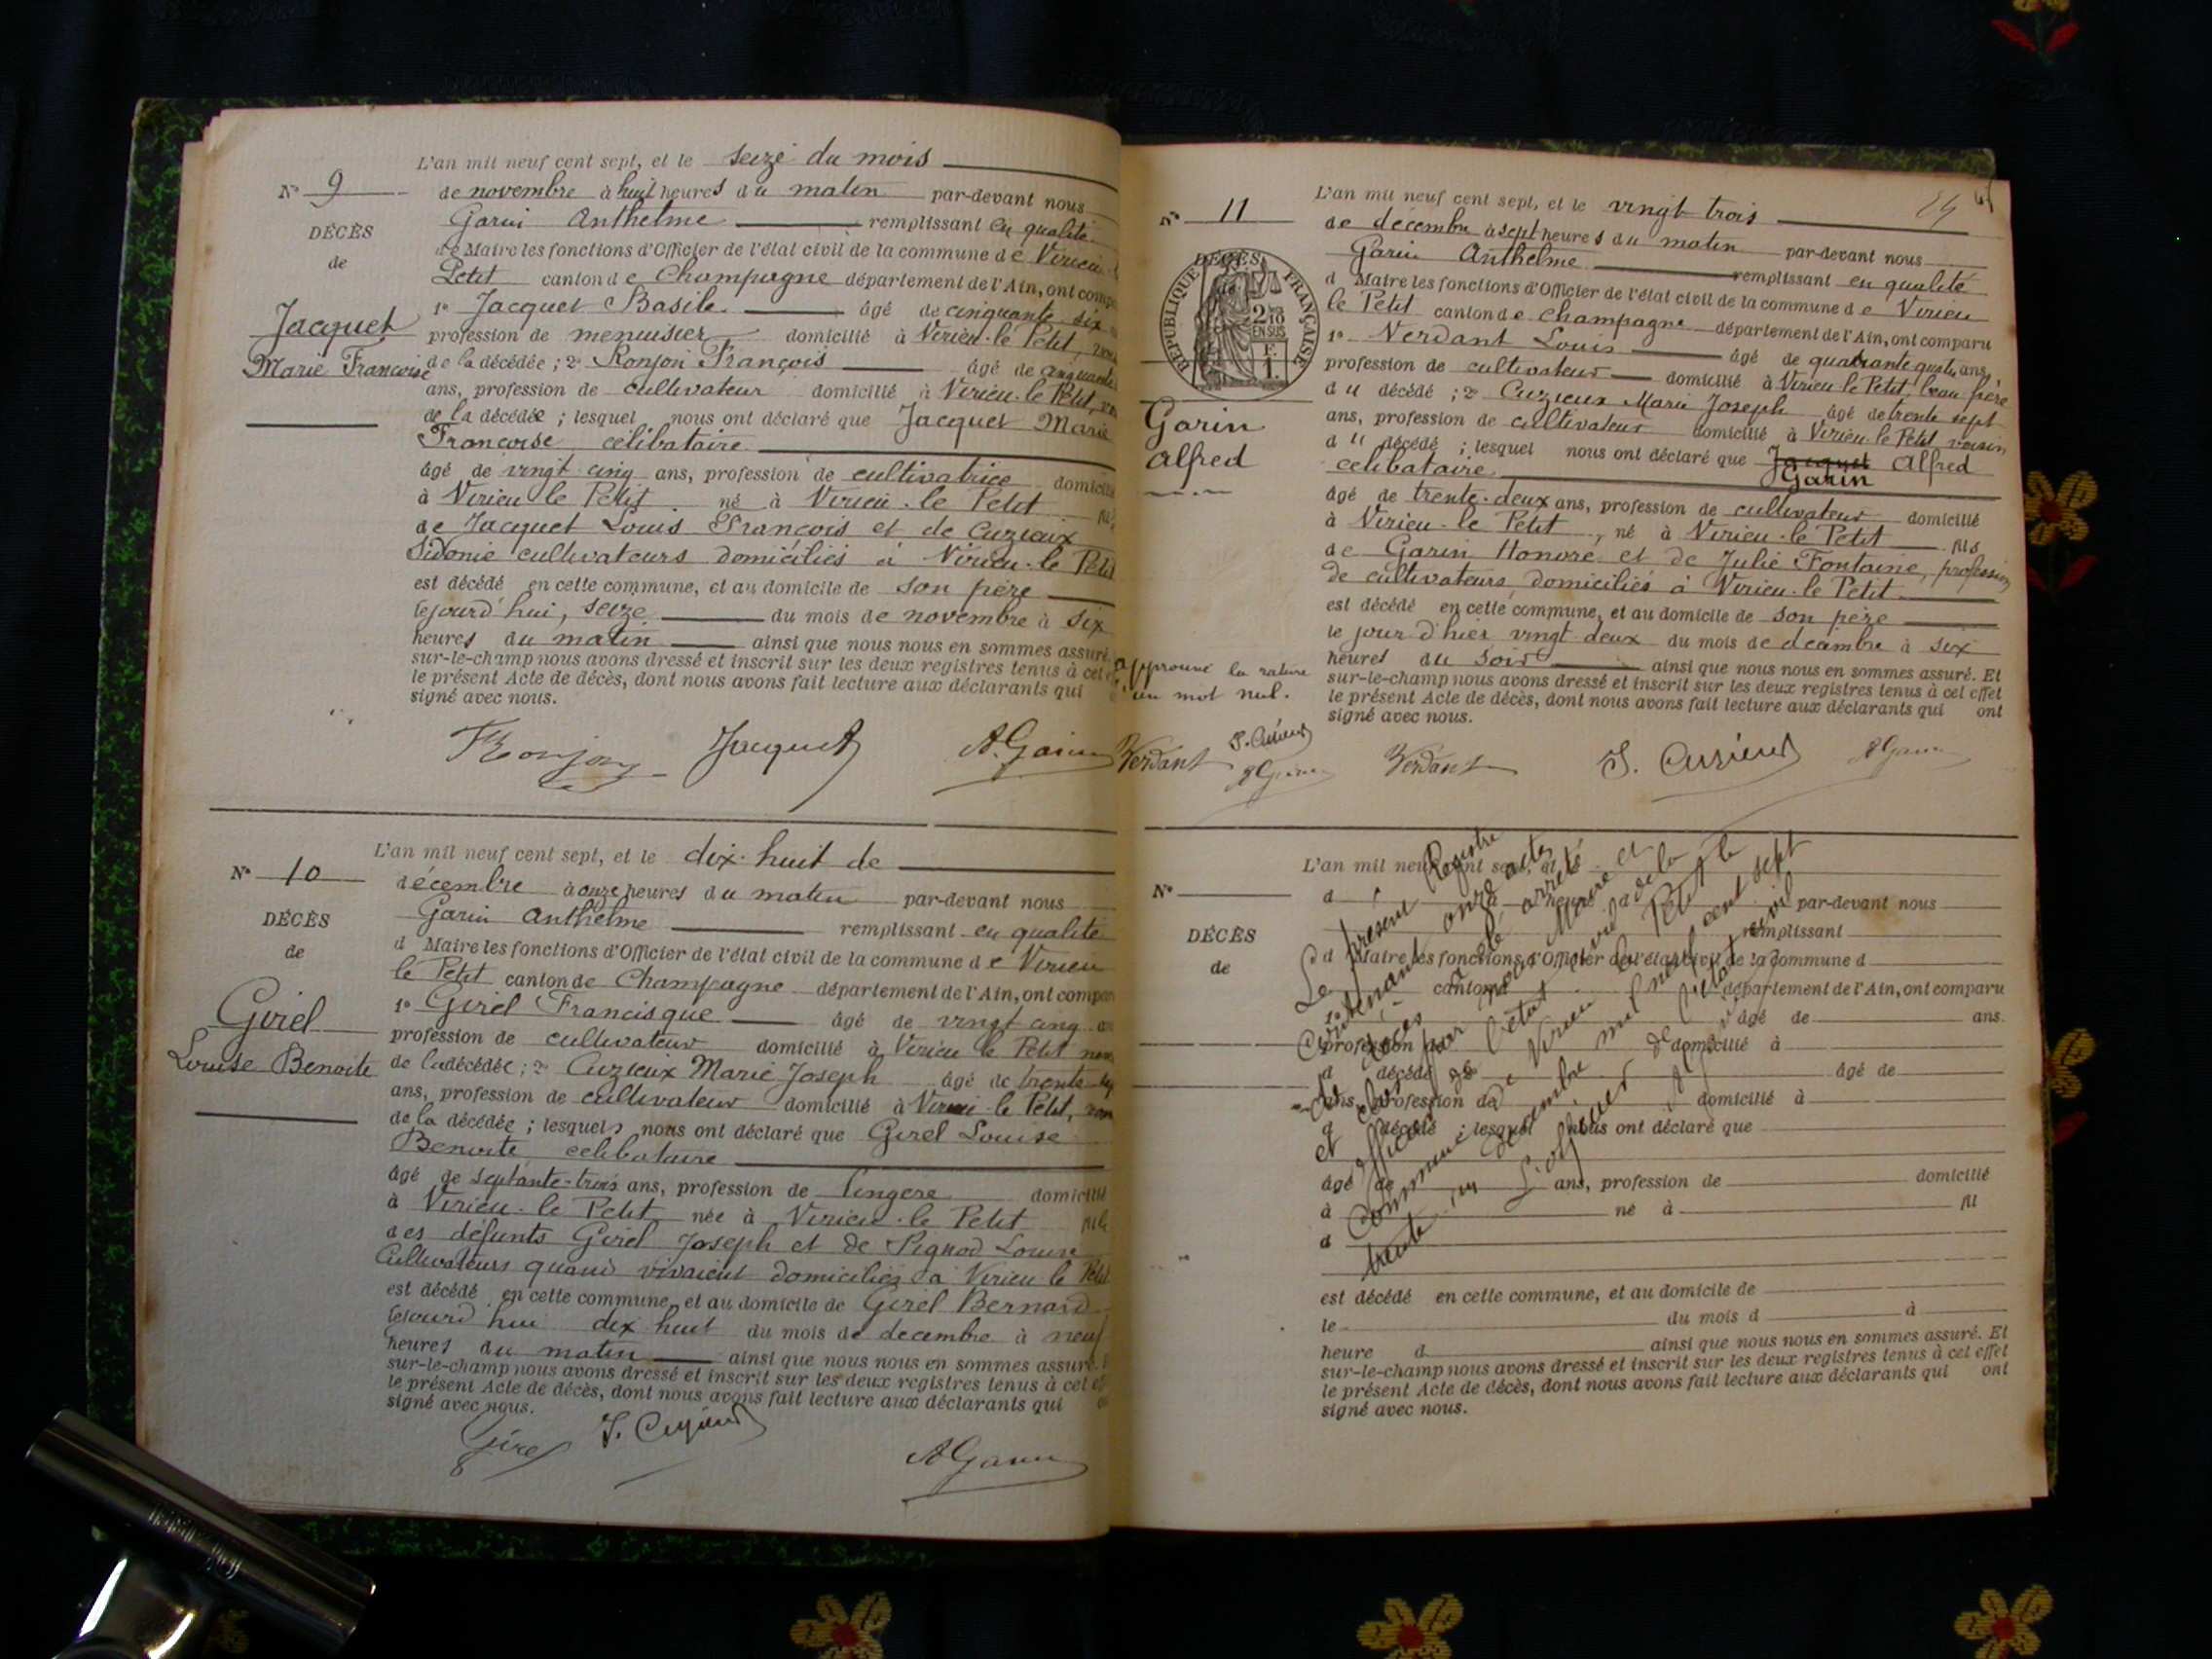 L'an mil neuf cent sept, et le seize du mois
N° 9
de novembre à huit heures du matin par-devant nous
Garin Anthelme remplissant en qualité
DÉCÈS
de Maire les fonctions d'Officier de l'état civil de la commune de Virieu
de
Petit canton de Champagne département de l'Ain, ont comp
1° Jacquet Basile âgé de cinquante six
Jacquet
profession de menuisier domicilié à Virieu-le Petit,
Marie Francoise
de la décédée ; 2° Ronjon François âgé de cinquante
ans, profession de cultivateur domicilié à Virieu-le Petit,
de la décédée ; lesquel nous ont déclaré que Jacquet Marie
Francoise célibataire
âgé de vingt cinq ans, profession de cultivatrice domicilié
à Virieu le Petit né à Virieu-le Petit
de Jacquet Louis François et de Cuzieux
Sidonie cultivateurs domiciliés à Virieu-le Petit
est décédé en cette commune, et au domicile de son père
le jourd'hui, seize du mois de novembre à six
heures du matin ainsi que nous nous en sommes assuré
sur-le-champ nous avons dressé et inscrit sur les deux registres tenus à cet
le présent Acte de décès, dont nous avons fait lecture aux déclarants qui
signé avec nous.
Ronjon Jacquet A. Garin
L'an mil neuf cent sept, et le dix-huit de
N° 10
décembre à onze heures du matin par-devant nous
DÉCÈS
Garin Anthelme remplissant en qualité
de
d Maire les fonctions d'Officier de l'état civil de la commune de Virieu
le Petit canton de Champagne département de l'Ain, ont compar
Girel
1° Girel Francisque âgé de vingt cinq
Louise Benoite
profession de cultivateur domicilié à Virieu le Petit
de la décédée ; 2° Cuzieux Marie Joseph âgé de trente
ans, profession de cultivateur domicilié à Virieu-le Petit,
de la décédée ; lesquels nous ont déclaré que Girel Louise
Benoite célibataire
âgé de septante-trois ans, profession de lingère domicilié
à Virieu-le Petit née à Virieu-le Petit
des défunts Girel Joseph et de Pignod Louise
Cultivateurs quand vivaient domiciliés à Virieu le Petit
est décédé en cette commune, et au domicile de Girel Bernard
le jourd'hui dix huit du mois de decembre à neuf
heures du matin ainsi que nous nous en sommes assuré.
sur-le-champ nous avons dressé et inscrit sur les deux registres tenus à cet
le présent Acte de décès, dont nous avons fait lecture aux déclarants qui
signé avec nous.
Girel J. Cuzieux A Garin
L'an mil neuf cent sept, et le vingt trois
N° 11
de décembre à sept heures du matin par-devant nous
Garin Anthelme remplissant en qualité
DÉCÈS
RÉPUBLIQUE FRANÇAISE
2/10
EN SUS
d Maire les fonctions d'Officier de l'état civil de la commune de Virieu
le Petit canton de Champagne département de l'Ain, ont comparu
1° Verdant Louis âgé de quatrante quatre ans,
profession de cultivateur domicilié à Virieu-le Petit, beau frère
du décédé ; 2° Cuzieux Marie Joseph âgé de trente sept
Garin
Alfred
ans, profession de cultivateur domicilié à Virieu-le Petit voisin
du décédé ; lesquel nous ont déclaré que Jacquet Alfred
Garin
célibataire
âgé de trente-deux ans, profession de cultivateur domicilié
à Virieu-le Petit, né à Virieu-le Petit fils
de Garin Honoré et de Julie Fontaine, profession
de cultivateurs, domiciliés à Virieu-le Petit
est décédé en cette commune, et au domicile de son père
le jour d'hier vingt deux du mois de décembre à six
heures du soir ainsi que nous nous en sommes assuré. Et
sur-le-champ nous avons dressé et inscrit sur les deux registres tenus à cet effet
le présent Acte de décès, dont nous avons fait lecture aux déclarants qui ont
signé avec nous.
Approuvé la rature
un mot nul.
Verdant J. Cuzieux A Garin
Verdant J. Cuzieux A Garin
L'an mil neuf cent sept, et le
N°
d à heure par-devant nous
remplissant
DÉCÈS
de
d Maire les fonctions d'Officier de l'état civil de la commune d
canton d département de l'Ain, ont comparu
1° âgé de ans.
profession de domicilié à
d décédé ; 2° âgé de
ans, profession de domicilié à
d décédé ; lesquel nous ont déclaré que
âgé de ans, profession de domicilié
à né à fil
d
est décédé en cette commune, et au domicile de
le du mois d à
heure d ainsi que nous nous en sommes assuré. Et
sur-le-champ nous avons dressé et inscrit sur les deux registres tenus à cet effet
le présent Acte de décès, dont nous avons fait lecture aux déclarants qui ont
signé avec nous.
Le présent Registre
Contenant onze actes
de décès a été arrêté
et clos par nous Maire et
officier de l'état civil de la
commune de Virieu le Petit le
trente un décembre mil neuf cent sept
L'officier de l'état civil